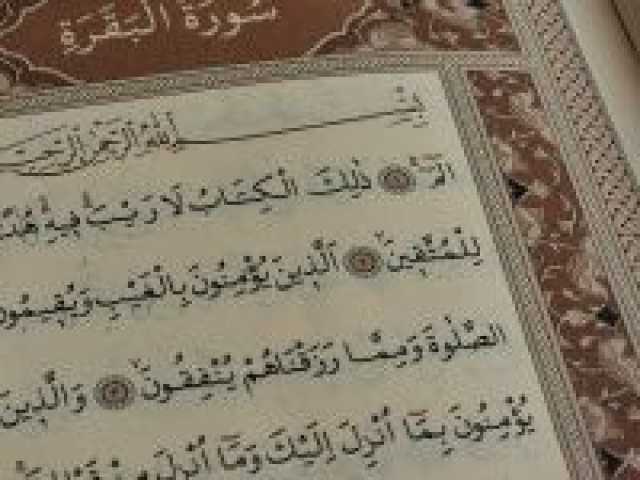 سُورَةُ الْبَقَرَةِ
بِسْمِ اللّٰهِ الرَّحْمٰنِ الرَّحِيمِ
الٓمٓ ذٰلِكَ الْكِتَابُ لَا رَيْبَ فِيهِ هُدًى
لِلْمُتَّقِينَ اَلَّذِينَ يُؤْمِنُونَ بِالْغَيْبِ وَيُقِيمُونَ
الصَّلٰوةَ وَمِمَّا رَزَقْنَاهُمْ يُنْفِقُونَ وَالَّذِينَ
يُؤْمِنُونَ بِمَٓا اُنْزِلَ اِلَيْكَ وَمَٓا اُنْزِلَ مِنْ